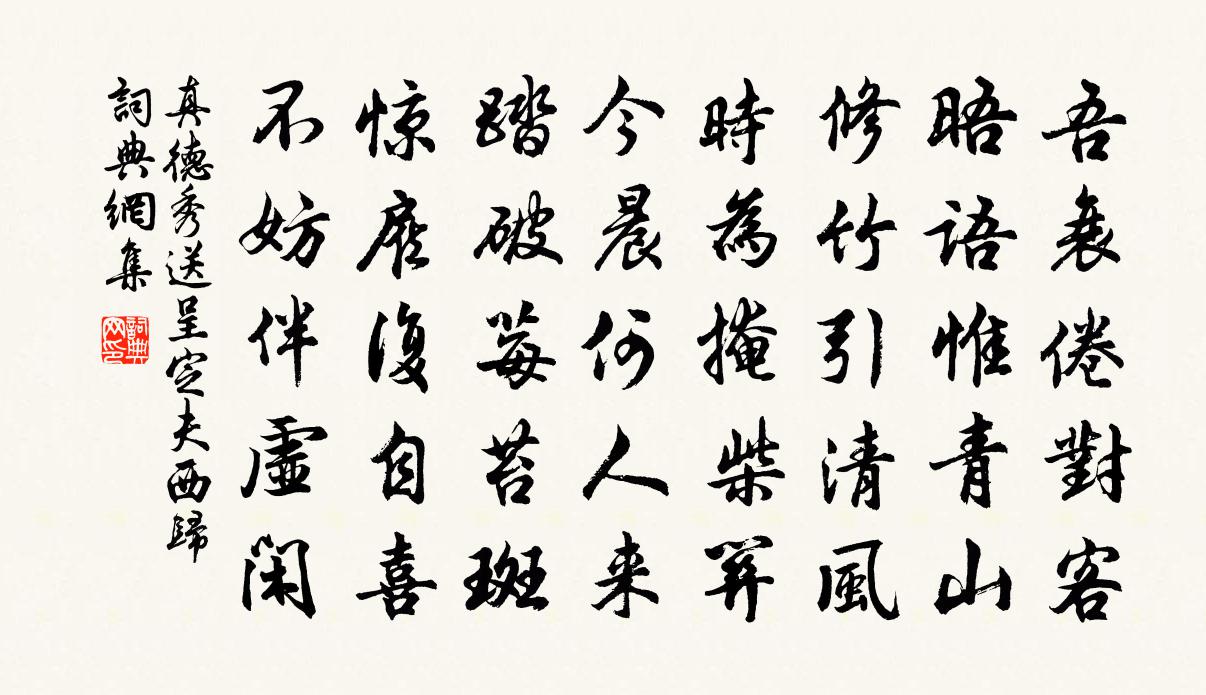 吾衰倦對客
晤語惟青山
修竹引清風
時為掩柴關
今晨何人来
踏破莓苔斑
惊定復自喜
不妨伴虛閑
真德秀送呈定夫西歸
詞典網集
詞典
网